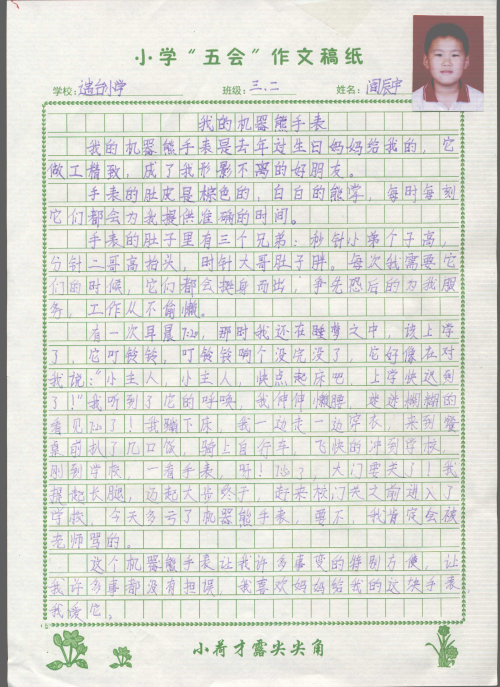 小学“五会”作文稿纸
学校： 小学 班级：三、二 姓名：闫辰宇
我的机器熊手表
我的机器熊手表是去年过生日妈妈给我的，它
做工精致，成了我形影不离的好朋友。
手表的肚皮是棕色的，白白的熊掌，每时每刻
它们都会为我提供准确的时间。
手表的肚子里有三个兄弟：秒针小弟个子高，
分针二哥高抬头，时针大哥肚子胖。每次我需要它
们的时候，它们都会挺身而出，争先恐后的为我服
务，工作从不偷懒。
有一次早晨7:20，那时我还在睡梦之中，该上学
了，它叮铃铃，叮铃铃响个没完没了，它好像在对
我说：“小主人，小主人，快点起床吧，上学快迟到
了！”我听到了它的呼唤，我伸伸懒腰，迷迷糊糊的
看见7:20了！我蹦下床，我一边走一边穿衣，来到餐
桌前扒了几口饭，骑上自行车，飞快的冲到学校，
刚到学校，一看手表，呀！ 了，大门要关了！我
提起长腿，迈起大步 ，赶来校门关之前进入了
学校，今天多亏了机器熊手表，要不，我肯定会被
老师骂的。
这个机器熊手表让我许多事变的特别方便，让
我许多事都没有担误，我喜欢妈妈给我的这块手表
我爱它。
小荷才露尖尖角